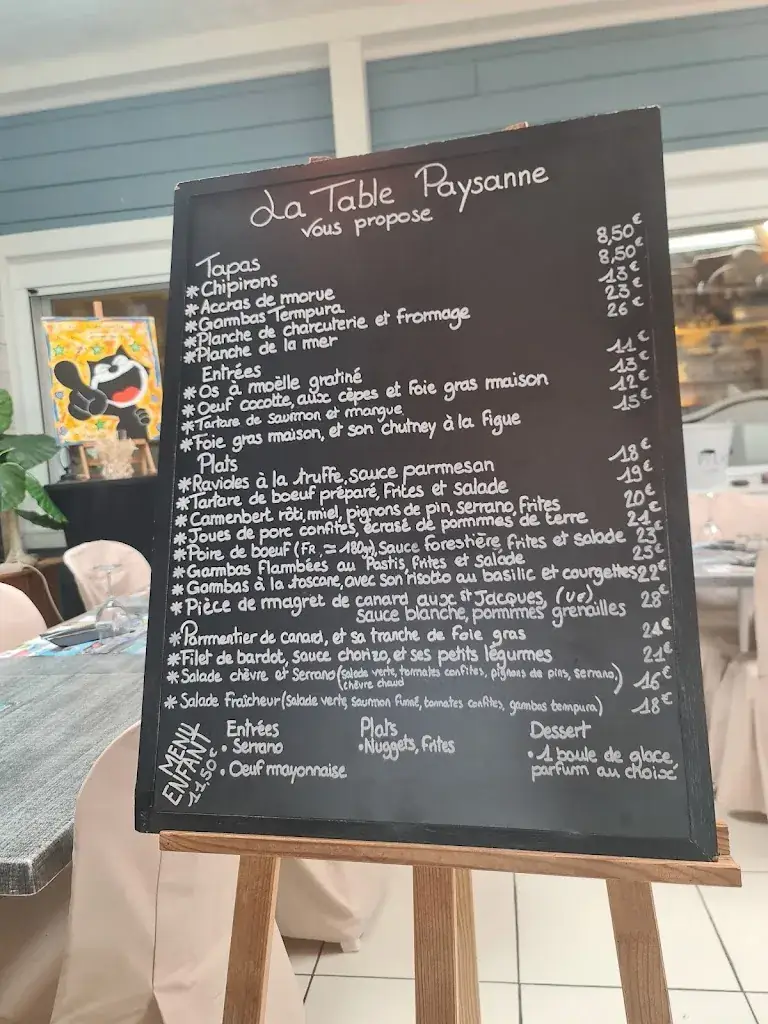 La Table Paysanne
Vous propose
Tapas
*Chipirons 8,50€
*Accras de morue 8,50€
*Gambas Tempura 13€
*Planche de charcuterie et fromage 23€
*Planche de la mer 26€
Entrées
*Os à moëlle gratiné 11€
*Oeuf cocotte, aux cèpes et foie gras maison 13€
*Tartare de saumon et mangue 12€
*Foie gras maison, et son chutney à la figue 15€
Plats
*Ravioles à la truffe, sauce parmesan 18€
*Tartare de boeuf préparé, frites et salade 19€
*Camenbert rôti, miel, pignons de pin, serrano, frites 20€
*Joues de porc confites, écrasé de pommes de terre 21€
*Poire de boeuf (FR, ≃ 180g), Sauce forestière, frites et salade 23€
*Gambas flambées au Pastis, frites et salade 25€
*Gambas à la toscane, avec son risotto au basilic et courgettes 22€
*Pièce de magret de canard aux St Jacques, (UE) 28€
sauce blanche, pommes grenailles
*Parmentier de canard, et sa tranche de foie gras 24€
*Filet de bardot, sauce chorizo, et ses petits légumes 21€
*Salade chèvre et Serrano (salade verte, tomates confites, pignons de pins, serrano, 16€
chèvre chaud)
*Salade fraîcheur (salade verte, saumon fumé, tomates confites, gambas tempura) 18€
MENU
ENFANT
11,50€
Entrées
• Serrano
• Oeuf mayonnaise
Plats
• Nuggets, frites
Dessert
• 1 boule de glace,
parfum au choix